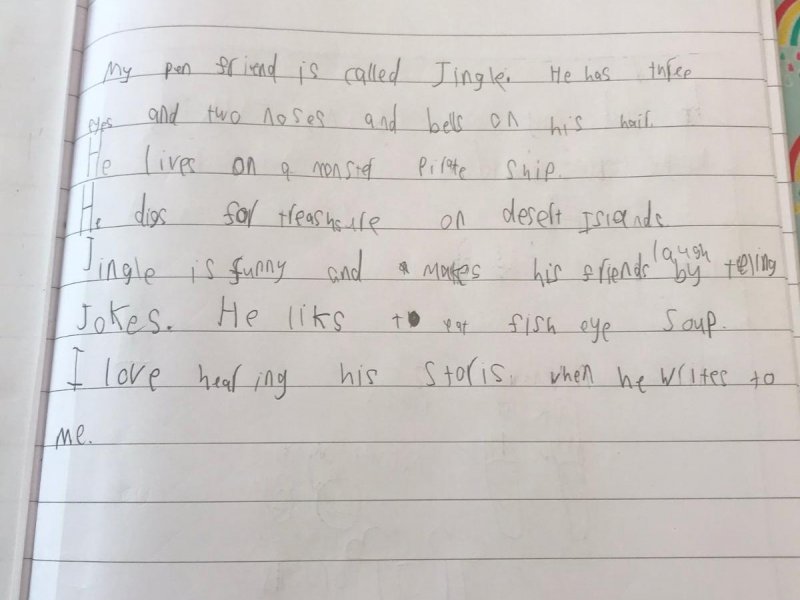 My pen friend is called Jingle. He has three
eyes and two noses and bells on his hair.
He lives on a monster Pirate Ship.
He digs for treashure on desert Islands.
Jingle is funny and makes his friends laugh by telling
Jokes. He liks to eat fish eye Soup.
I love hearing his Storis. when he writes to
me.